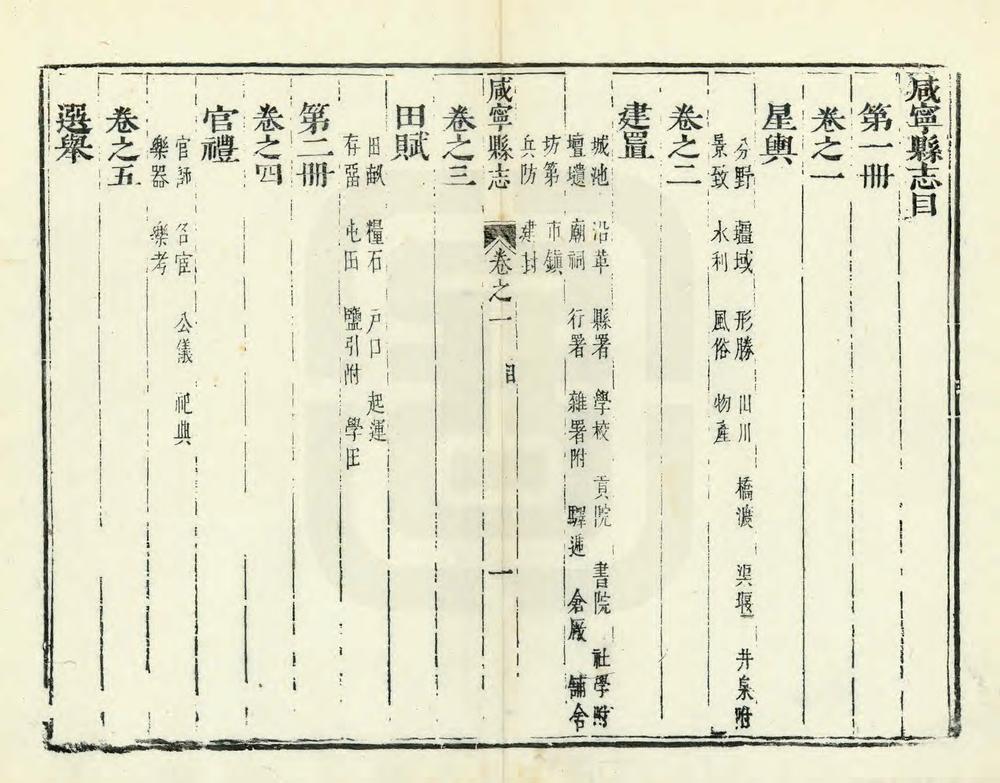 咸寧縣志目
第一冊
卷之一
星輿
分野 疆域 形勝 山川 橋渡 渠堰 井泉附
景致 水利 風俗 物產
卷之二
建置
城池 沿革 縣署 學校 貢院 書院 社學附
壇壝 廟祠 行署 雜署附 驛遞 倉厫 舖舍
坊第 市鎮
兵防 建封
咸寧縣志 卷之一 目 一
卷之三
田賦
田畝 糧石 戶口 起運
存留 屯田 鹽引附 學田
第二冊
卷之四
官禮
官師 名宦 公儀 祀典
樂器 樂考
卷之五
選舉